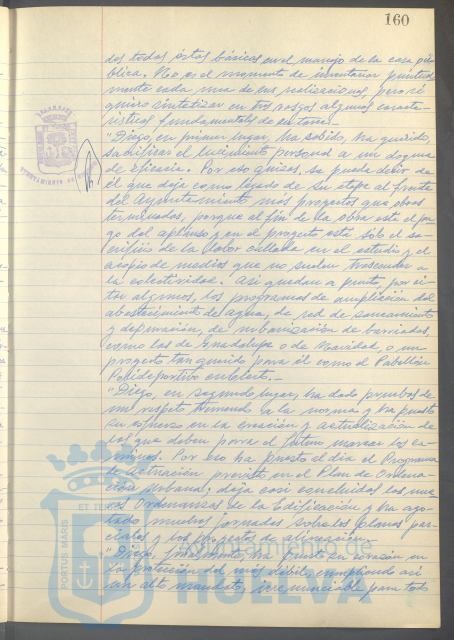 160
dos todos éstos básicos en el manejo de la cosa pú-
blica. No es el momento de inventariar puntual-
mente cada una de sus realizaciones, pero sí
quiero sintetizar en tres rasgos algunas caracte-
rísticas fundamentales de su tarea.-
"Diego, en primer lugar, ha sabido, ha querido,
sacrificar el lucimiento personal a un dogma
de eficacia. Por eso quizás, se pueda decir de
él que deja como legado de su etapa al frente
del Ayuntamiento más proyectos que obras
terminadas, porque al fin de la obra está el pa-
go del aplauso y en el proyecto está sólo el sa-
crificio de la labor callada en el estudio y el
acopio de medios que no suelen trascender a
la colectividad. Así quedan a punto, por ci-
tar algunos, los programas de ampliación del
abastecimiento de agua, de red de saneamiento
y depuración, de urbanización de barriadas
como las de Guadalupe o de Navidad, o un
proyecto tan querido para él como el Pabellón
Polideportivo cubierto.-
"Diego, en segundo lugar, ha dado pruebas de
un respeto tremendo a la norma y ha puesto
su esfuerzo en la creación y actualización de
las que deben para el futuro marcar los ca-
minos. Por eso ha puesto al día el Programa
de Actuación previsto en el Plan de Ordena-
ción Urbana; deja casi concluidas las nue-
vas Ordenanzas de la Edificación y ha ago-
tado muchas jornadas sobre los planes par-
ciales y los proyectos de alineación.-
"Diego, finalmente, ha puesto su corazón en
la protección del más débil, cumpliendo así
un alto mandato, irrenunciable para todo
PORTUS MARIS
ET TERRAE
Ayuntamiento de
HUELVA